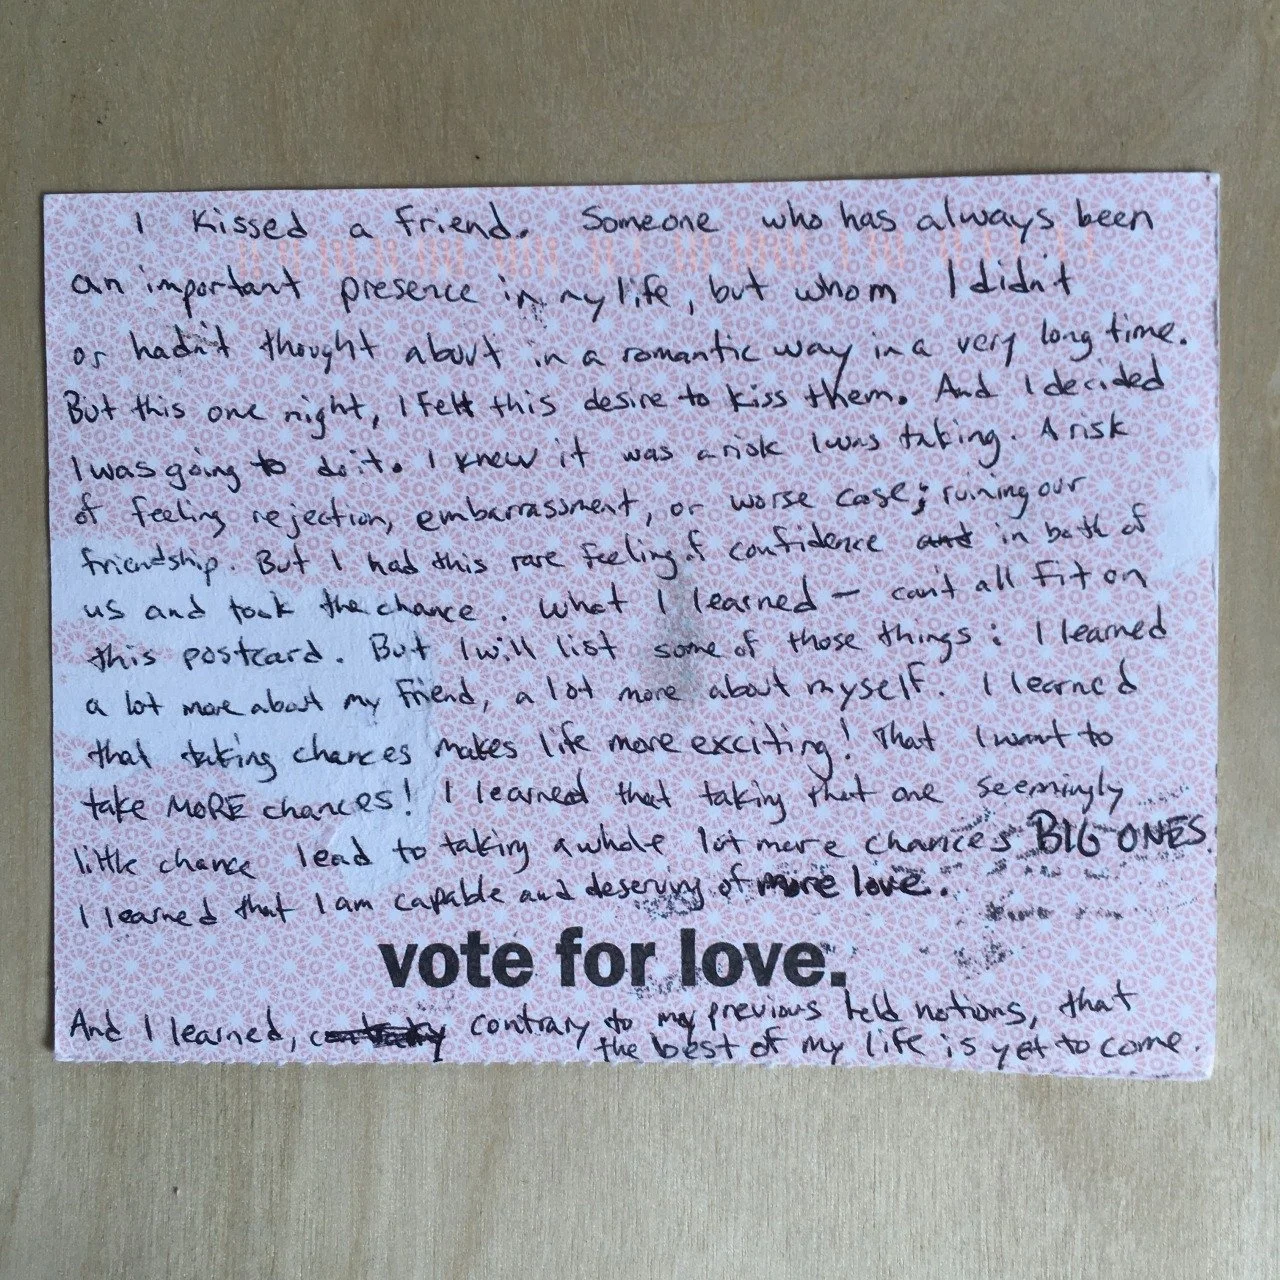 I kissed a friend. Someone who has always been
an important presence in my life, but whom I didn't
or hadn't thought about in a romantic way in a very long time.
But this one night, I felt this desire to kiss them. And I decided
I was going to do it. I knew it was a risk I was taking. A risk
of feeling rejection, embarrassment, or worse case; ruining our
friendship. But I had this rare feeling of confidence and in both of
us and took the chance. What I learned — can't all fit on
this postcard. But I will list some of those things: I learned
a lot more about my friend, a lot more about myself. I learned
that taking chances makes life more exciting! That I want to
take MORE chances! I learned that taking that one seemingly
little chance lead to taking a whole lot more chances BIG ONES.
I learned that I am capable and deserving of more love.
vote for love.
And I learned, contrary to my previous held notions, that
the best of my life is yet to come.